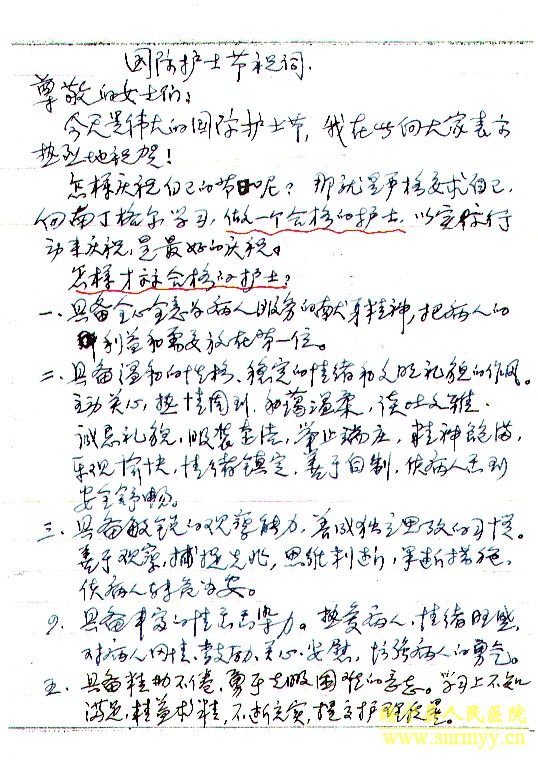 国际护士节祝词.
尊敬的女士们：
今天是伟大的国际护士节，我在此向大家表示
热烈地祝贺！
怎样庆祝自己的节日呢？那就是严格要求自己，
向南丁格尔学习，做一个合格的护士，以实际行
动来庆祝，是最好的庆祝。
怎样才称合格的护士？
一、具备全心全意为病人服务的献身精神，把病人的
利益和需要放在第一位。
二、具备温和的性格、稳定的情绪和文明礼貌的作风。
主动关心，热情周到，和蔼温柔，谈吐文雅，
诚恳礼貌，服装整洁，举止端庄，精神饱满，
乐观愉快，情绪镇定，善于自制，使病人感到
安全舒畅。
三、具备敏锐的观察能力，养成独立思考的习惯。
善于观察，捕捉先兆，思维判断，果断措施，
使病人转危为安。
四、具备丰富的情感感染力。热爱病人，情绪旺盛，
对病人同情、鼓励、关心、安慰，增强病人的勇气。
五、具备孜孜不倦，勇于克服困难的意志。学习上不知
满足，精益求精，不断充实，提高护理质量。
人民医院
www.snrmyy.cn